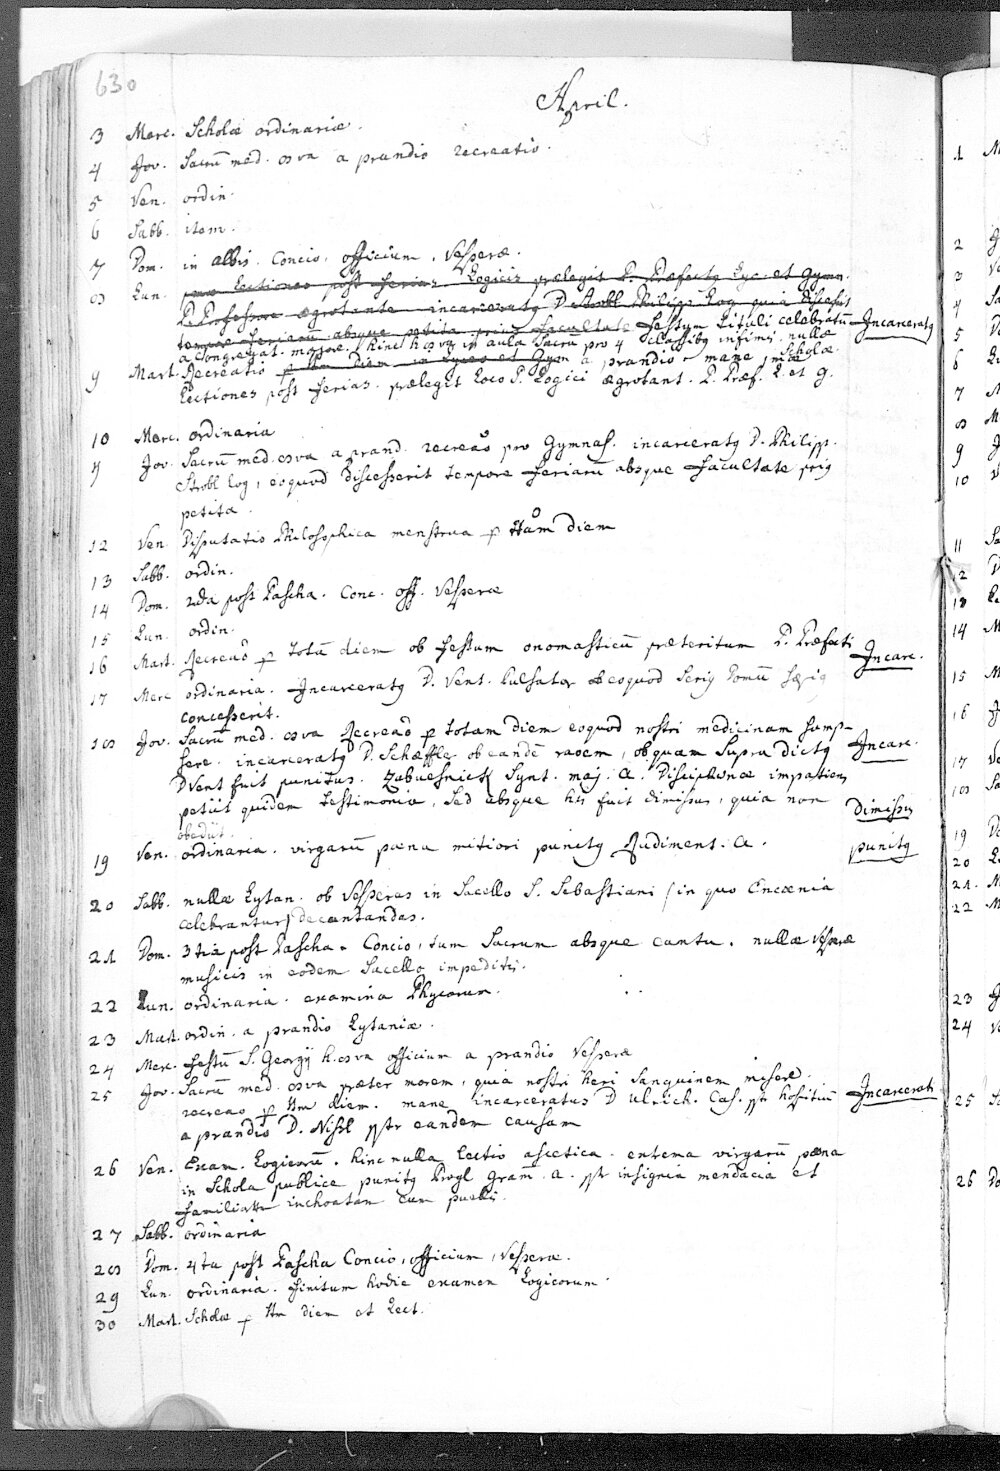 630
April.
3 Merc. Scholæ ordinariæ.
4 Jov. Sacrũ med. 8va a prandio recreatio.
5 Ven. ordin.
6 Sabb. item.
7 Dom. in albis. Concio, officium, Vesperæ.
8 Lun. lectiones post ferias Logicis prælegit P. Præfectg Lyc. et Gymn.
P. Professore ægrotante incarceratg D. Strobl Philipp Log quia discessit
tempore feriarũ absque petita prius facultate festum tituli celebratũ Incarceratg
a Congregat. majore. hinc h. 8va in aula Sacrũ pro 4 classibg infimis. nullæ
9 Mart. Recreatio p ttm diem in Lyceo et Gymn a prandio mane Scholæ.
Lectiones post ferias. prælegit loco P. Logici ægrotant. P. Præf. L. et G.
10 Merc. ordinaria
11 Jov. Sacrũ med. 8va a prand. recreaõ pro Gymnas. incarceratg D. Philipp.
Strobl Log, eo quod discesserit tempore feriarũ absque facultate prig
petita.
12 Ven. Disputatio Philosophica menstrua p ttũm diem
13 Sabb. ordin.
14 Dom. 2da post Pascha. Conc. off. Vesperæ
15 Lun. ordin.
16 Mart. Recreaõ p totũ diem ob festum onomasticũ præteritum P. Præfecti
17 Merc ordinaria. Incarceratg D. Vent. Pulsator ob eo quod serig domũ Incarc.
concesserit.
18 Jov. Sacrũ med. 8va Recreaõ p totam diem eo quod nostri medicinam sump-
sere. incarceratg D. Schæffle ob eandẽ raõem, ob quam supra dictg Incarc.
D Vent fuit punitus. Zabuesnick Synt. maj. a. Disciplinæ impatiens
petiit quidem testimonia, sed absque his fuit dimissus, quia non dimissus
obediit.
19 Ven. ordinaria. virgarũ pœna mitiori punitg Rudiment. a. punitg
20 Sabb. nullæ Lytan. ob Vesperas in Sacello S. Sebastiani (in quo Encænia
celebrantur) decantandas.
21 Dom. 3tia post Pascha. Concio, tum Sacrum absque cantu. nullæ Vesperæ
musicis in eodem Sacello impeditis.
22 Lun. ordinaria. examina Physicorum.
23 Mart. ordin. a prandio Lytaniæ.
24 Merc. festũ S. Georgij h. 8va officium a prandio Vesperæ
25 Jov. Sacrũ med. 8va præter morem, quia nostri heri sanguinem misere.
recreaõ p ttm diem. mane incarceratus D Ulrich. Cas. pptr hospitiũ Incarcerati
a prandio D. Nissl pptr eandem causam
26 Ven. Exam. Logicorũ. hinc nulla lectio ascetica. externa virgarũ pœna
in Schola publice punitg Progl Gram. a. pptr insignia mendacia et
familiarit. inchoatam cum puellis.
27 Sabb. ordinaria
28 Dom. 4ta post Pascha Concio, officium, Vesperæ.
29 Lun. ordinaria. finitum hodie examen Logicorum.
30 Mart. Scholæ p ttm diem et Lect.